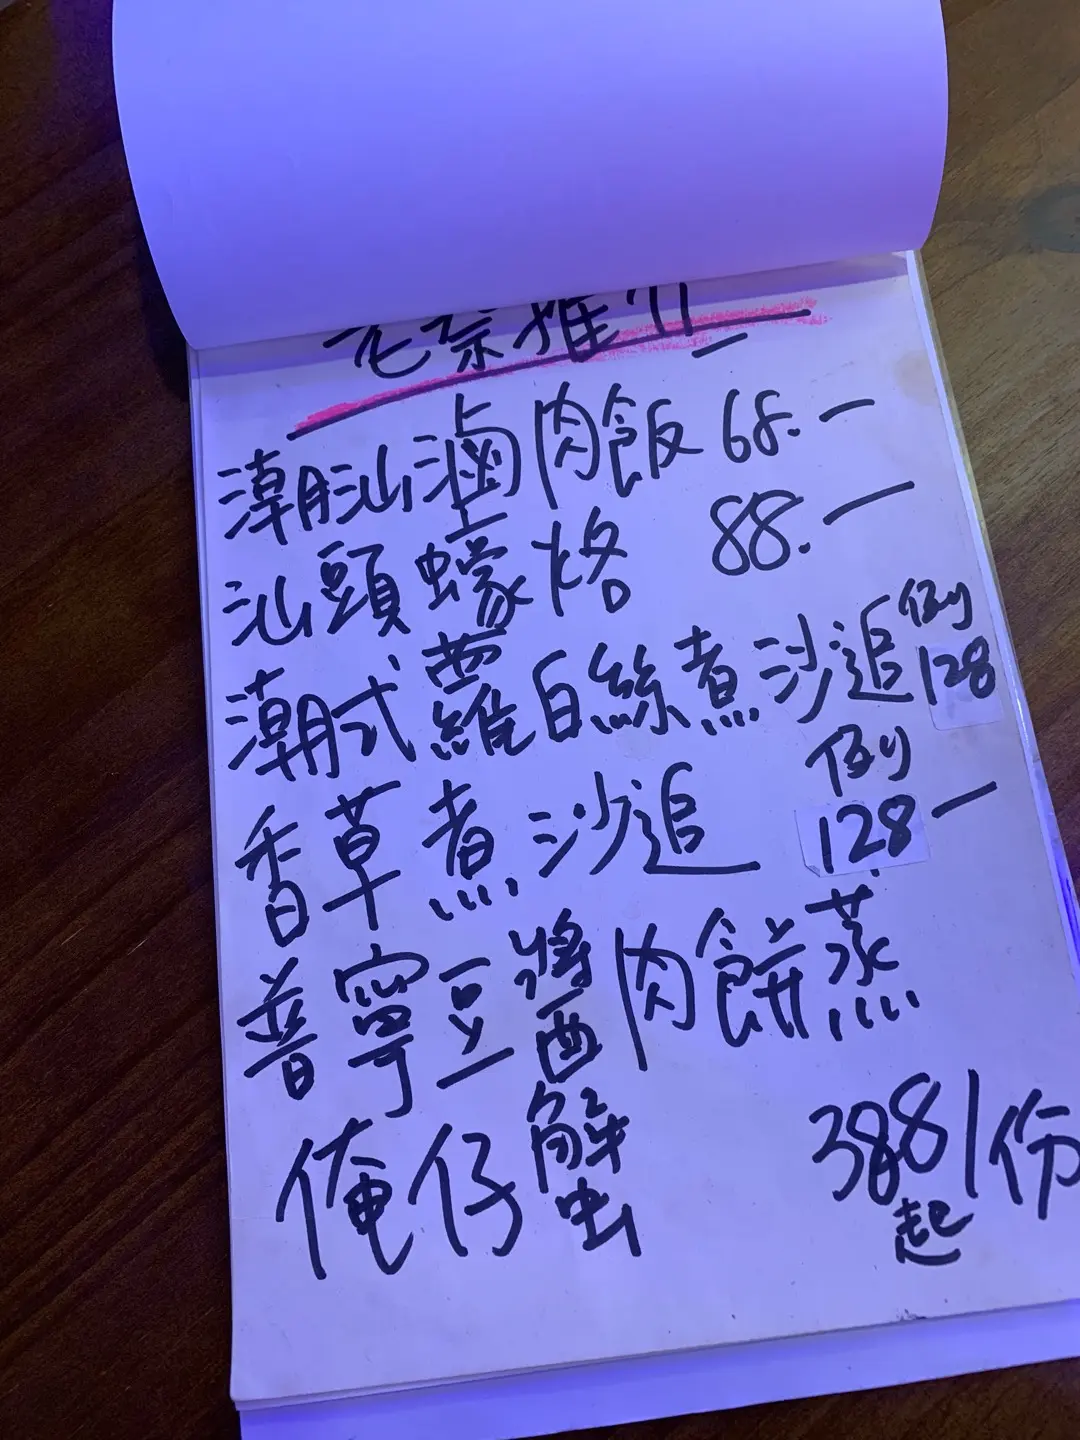 推介
潮汕滷肉飯 68.—
汕頭蠔烙 88.—
潮式蘿白絲煮沙追 例 128
香草煮沙追 例 128—
普寧豆醬肉餅蒸
俺仔蟹 388/份
起